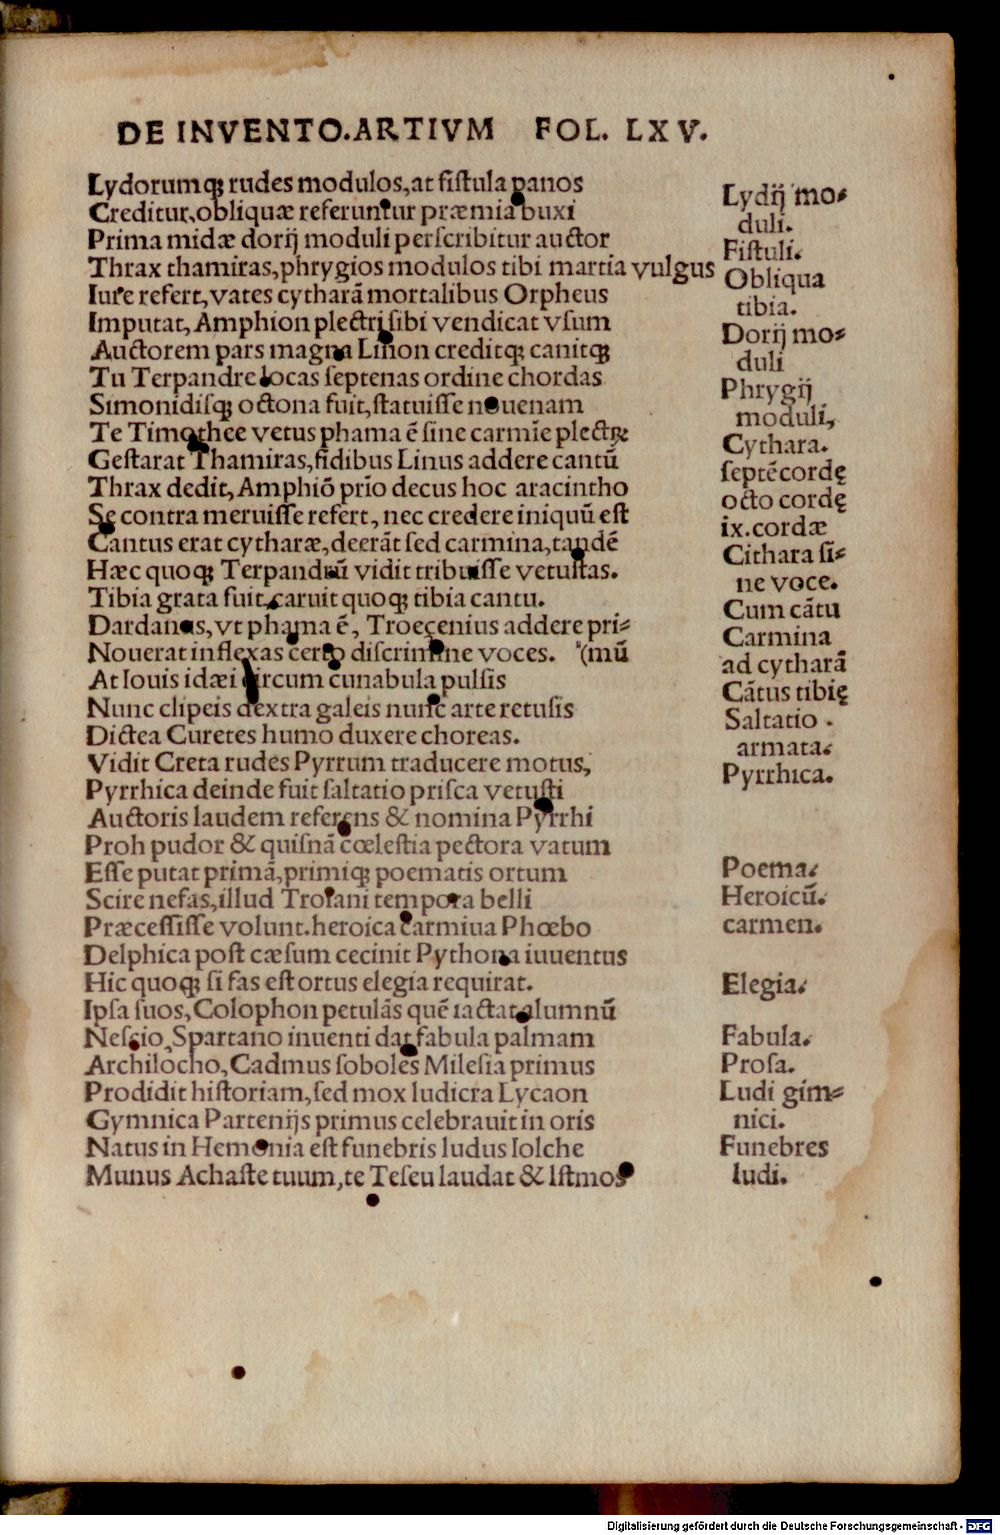 DE INVENTO.ARTIVM FOL. LXV.
Lydorumq; rudes modulos,at fistula panos
Creditur,obliquæ referuntur præmia buxi
Prima midæ dorij moduli perscribitur auctor
Thrax thamiras,phrygios modulos tibi martia vulgus
Iure refert,vates cytharā mortalibus Orpheus
Imputat, Amphion plectri sibi vendicat vsum
Auctorem pars magna Linon creditq; canitq;
Tu Terpandre locas septenas ordine chordas
Simonidisq; octona fuit,statuisse nouenam
Te Timothee vetus phama ē sine carmīe plectꝝ
Gestarat Thamiras,fidibus Linus addere cantū
Thrax dedit, Amphiō prīo decus hoc aracintho
Se contra meruisse refert, nec credere iniquū est
Cantus erat cytharæ,deerāt sed carmina,tandē
Hæc quoq; Terpandrū vidit tribuisse vetustas.
Tibia grata fuit,caruit quoq; tibia cantu.
Dardanus,vt phama ē, Troeçenius addere pri-
Nouerat inflexas certo discrimine voces. (mū
At Iouis idæi circum cunabula pulsis
Nunc clipeis dextra galeis nunc arte retusis
Dictea Curetes humo duxere choreas.
Vidit Creta rudes Pyrrum traducere motus,
Pyrrhica deinde fuit saltatio prisca vetusti
Auctoris laudem referens & nomina Pyrrhi
Proh pudor & quisnā cœlestia pectora vatum
Esse putat primā,primiq; poematis ortum
Scire nefas,illud Troiani tempora belli
Præcessisse volunt.heroica carmiua Phœbo
Delphica post cæsum cecinit Pythona iuuentus
Hic quoq; si fas est ortus elegia requirat.
Ipsa suos, Colophon petulās quē iactat alumnū
Nescio, Spartano inuenti dat fabula palmam
Archilocho, Cadmus soboles Milesia primus
Prodidit historiam,sed mox ludicra Lycaon
Gymnica Partenijs primus celebrauit in oris
Natus in Hemonia est funebris ludus Iolche
Munus Achaste tuum,te Teseu laudat & Istmos
Lydij mo-
duli.
Fistuli.
Obliqua
tibia.
Dorij mo-
duli
Phrygij
moduli,
Cythara.
septē cordę
octo cordę
ix.cordæ
Cithara si-
ne voce.
Cum cātu
Carmina
ad cytharā
Cātus tibię
Saltatio .
armata.
Pyrrhica.
Poema.
Heroicū.
carmen.
Elegia.
Fabula.
Prosa.
Ludi gim-
nici.
Funebres
ludi.
Digitalisierung gefördert durch die Deutsche Forschungsgemeinschaft - DFG